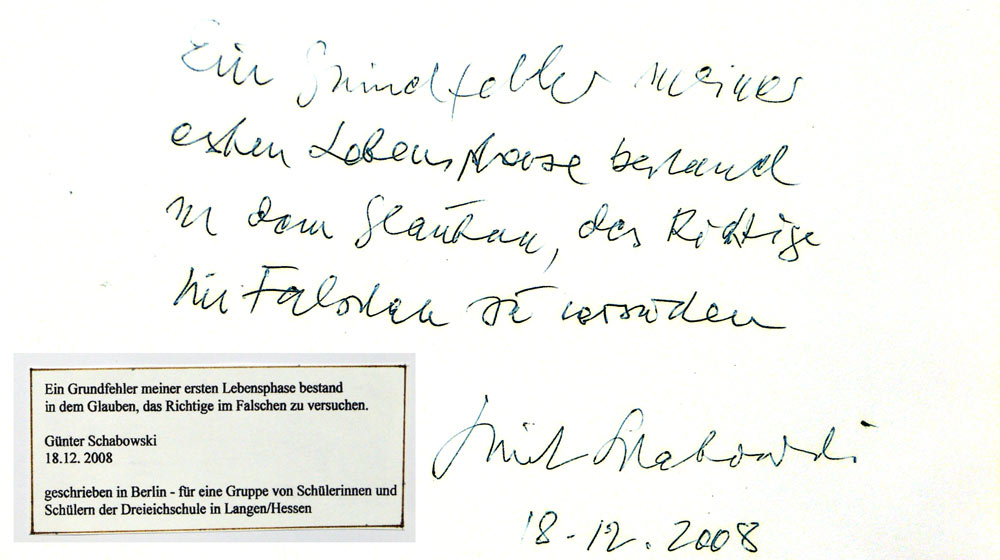 Ein Grundfehler meiner
ersten Lebensphase bestand
in dem Glauben, das Richtige
im Falschen zu versuchen
Ein Grundfehler meiner ersten Lebensphase bestand
in dem Glauben, das Richtige im Falschen zu versuchen.
Günter Schabowski
18.12. 2008
geschrieben in Berlin - für eine Gruppe von Schülerinnen und
Schülern der Dreieichschule in Langen/Hessen
Günter Schabowski
18.12.2008